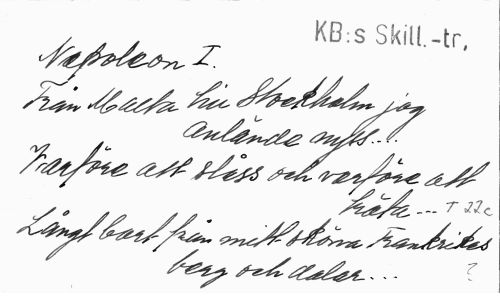 KB:s Skill.-tr.
Napoleon I.
Från Malta till Stockholm jag
anlände nyss....
Varföre att slåss och varföre att
träta... T 22c
Långt bort från mitt sköna Frankrikes
berg och dalar... ?